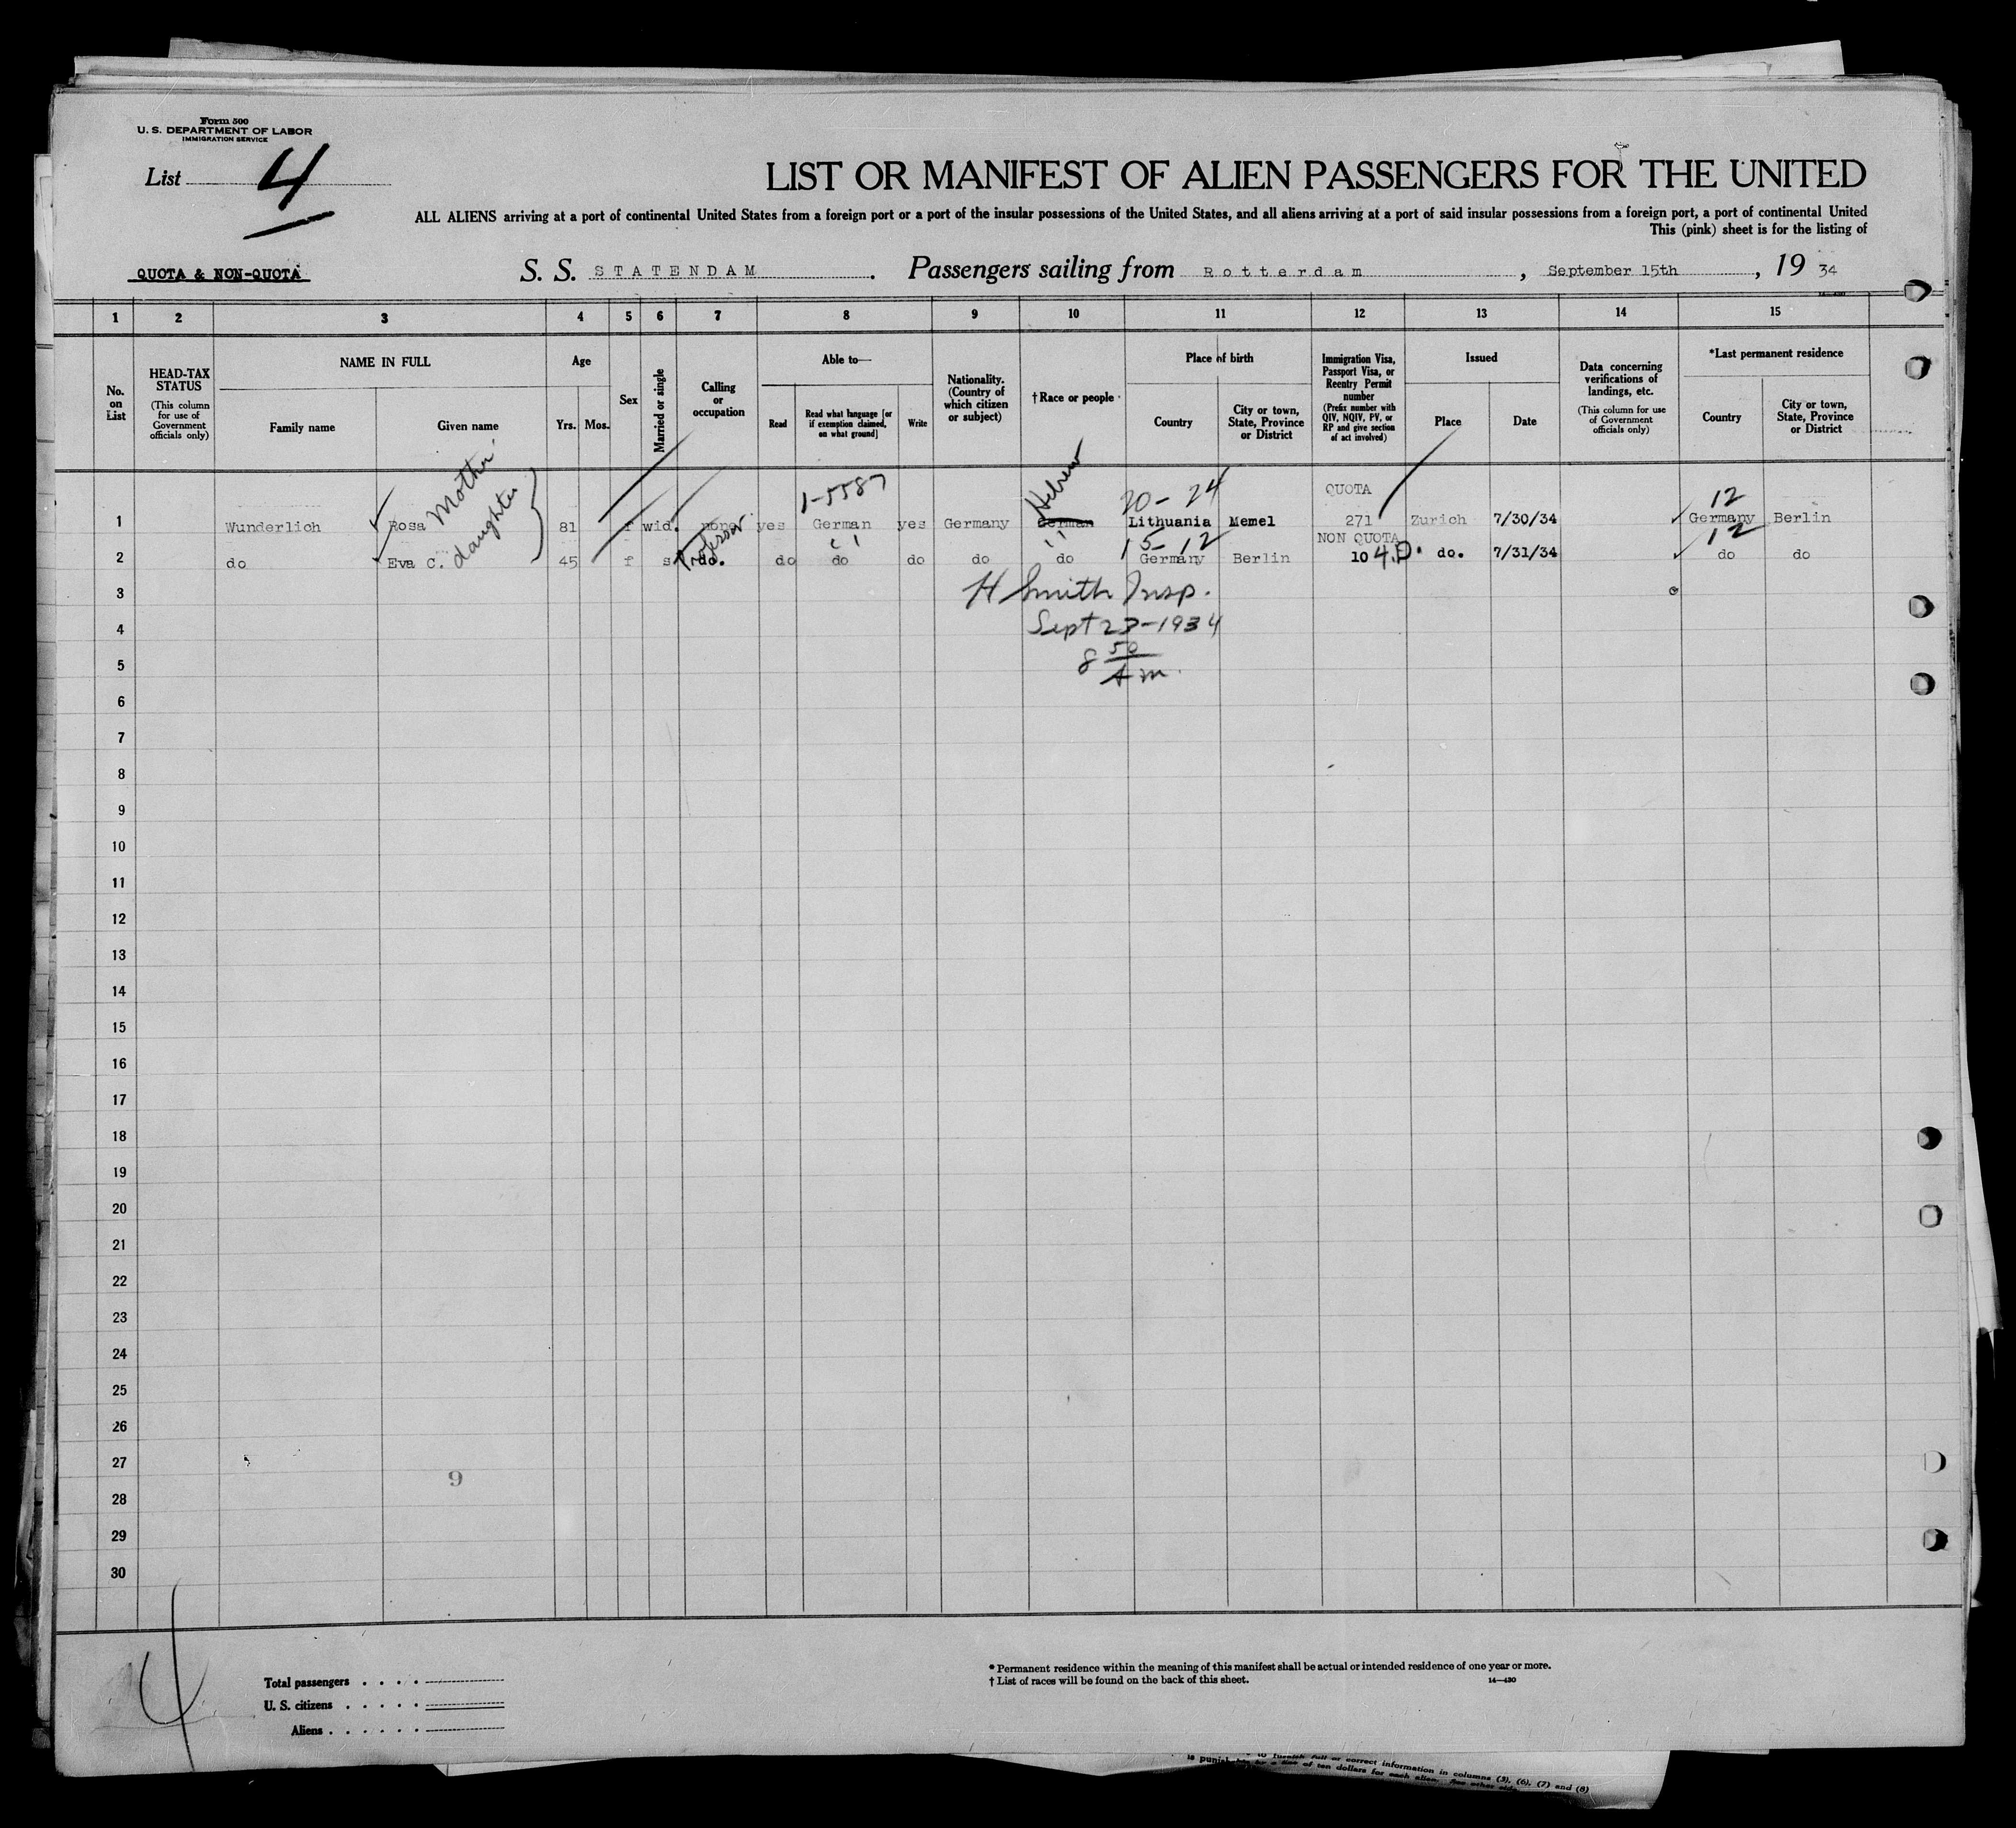 Form 500
U. S. DEPARTMENT OF LABOR
IMMIGRATION SERVICE
List 4
LIST OR MANIFEST OF ALIEN PASSENGERS FOR THE UNITED
ALL ALIENS arriving at a port of continental United States from a foreign port or a port of the insular possessions of the United States, and all aliens arriving at a port of said insular possessions from a foreign port, a port of continental United
This (pink) sheet is for the listing of
QUOTA & NON-QUOTA
S. S. STATENDAM . Passengers sailing from Rotterdam , September 15th , 19 34
1 2 3 4 5 6 7 8 9 10 11 12 13 14 15
No. on List
HEAD-TAX STATUS
(This column for use of Government officials only)
NAME IN FULL
Family name
Given name
Age
Yrs. Mos.
Sex
Married or single
Calling or occupation
Able to—
Read
Read what language [or if exemption claimed, on what ground]
Write
Nationality. (Country of which citizen or subject)
† Race or people
Place of birth
Country
City or town, State, Province or District
Immigration Visa, Passport Visa, or Reentry Permit number
(Prefix number with QIV, NQIV, PV, or RP and give section of act involved)
Issued
Place
Date
Data concerning verifications of landings, etc.
(This column for use of Government officials only)
*Last permanent residence
Country
City or town, State, Province or District
1-5587 Hebrew 20-24 QUOTA 12
1 Wunderlich Rosa Mother 81 f wid. none yes German yes Germany German Lithuania Memel 271 Zurich 7/30/34 Germany Berlin
Professor 15-12 NON QUOTA 12
2 do Eva C. daughter 45 f s do. do do do do do Germany Berlin 10 4.D. do. 7/31/34 do do
3 H Smith Insp.
4 Sept 23-1934
5 8 50
Am.
6
7
8
9
10
11
12
13
14
15
16
17
18
19
20
21
22
23
24
25
26
27
9
28
29
30
4
Total passengers
U. S. citizens
Aliens
* Permanent residence within the meaning of this manifest shall be actual or intended residence of one year or more.
† List of races will be found on the back of this sheet.
14—430
to furnish full or correct information in columns (3), (6), (7) and (8)
is punishable by a fine of ten dollars for each alien. See other side.